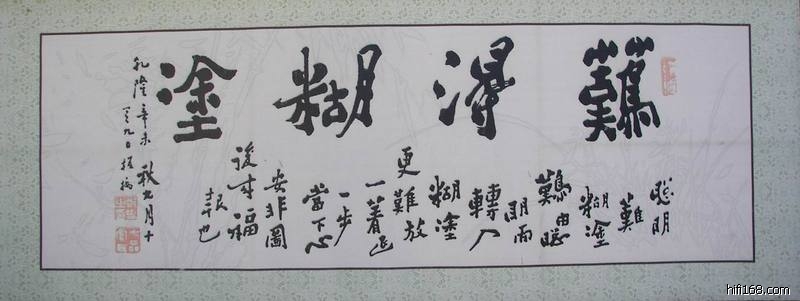 難得糊塗
聰明
難
糊塗
難由聰
明而
轉入
糊塗
更難放
一著退
一步
當下心
安非圖
後来福
報也
乾隆辛未秋九月十
九日板橋
hifi168.com